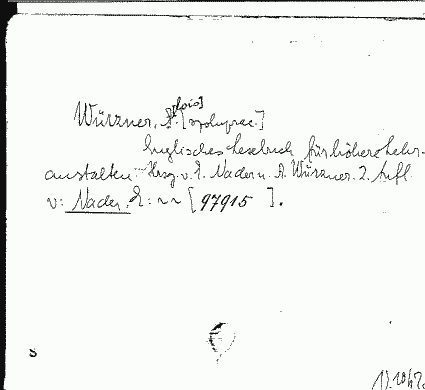 Würzner, A.[lois] [współprac.]
Englisches Lesebuch für höhere Lehr-
anstalten. Hrsg. v. E. Nader u. A. Würzner. 2. Aufl.
v: Nader, E: ~ ~ [ 97915 ].
s